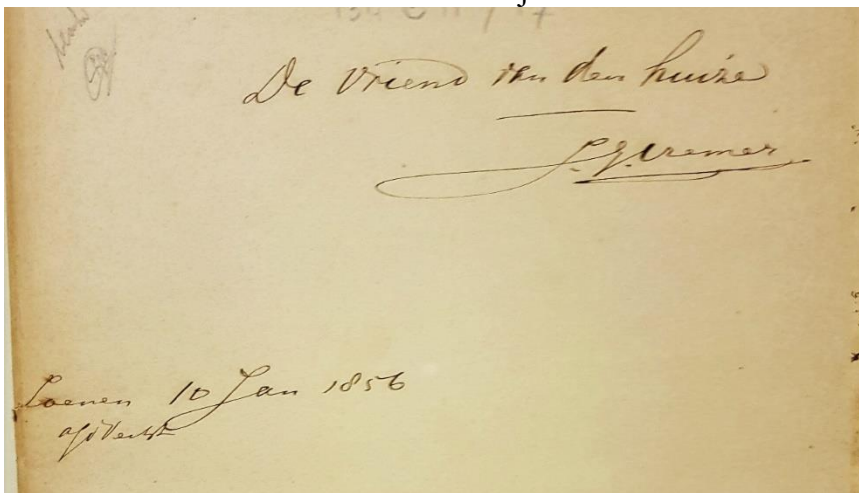 De Vriend van den huize
J. J. Cremer.
Loenen 10 Jan 1856
a/d Vecht